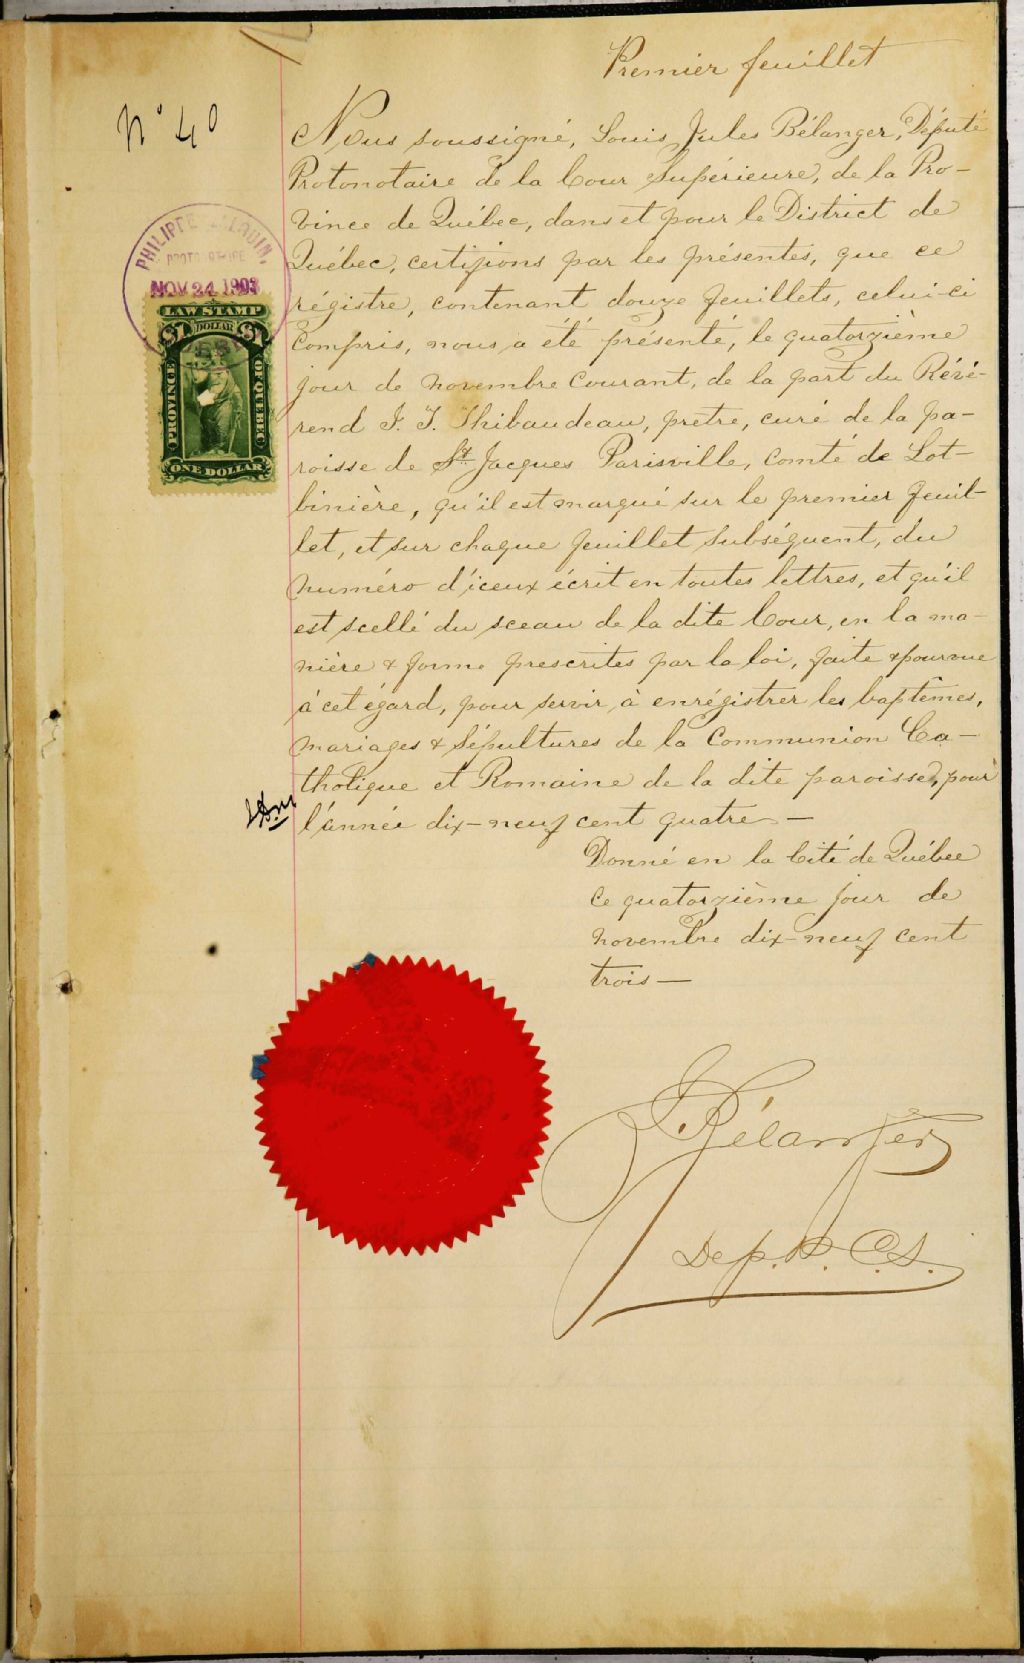 Premier feuillet
N° 40
Nous soussigné, Louis Jules Bélanger, Député
Protonotaire de la Cour Supérieure, de la Pro-
vince de Québec, dans et pour le District de
Québec, certifions par les présentes, que ce
régistre, contenant douze feuillets, celui-ci
Compris, nous a été présenté, le quatorzième
jour de novembre courant, de la part du Révé-
rend J. T. Thibaudeau, prêtre, curé de la pa-
roisse de St Jacques Parisville, comté de Lot-
binière, qu'il est marqué sur le premier feuil-
let, et sur chaque feuillet subséquent, du
numéro d'iceux écrit en toutes lettres, et qu'il
est scellé du sceau de la dite Cour, en la ma-
nière & forme prescrites par la loi, faite & pourvue
à cet égard, pour servir à enrégistrer les baptêmes,
mariages & Sépultures de la Communion Ca-
tholique et Romaine de la dite paroisse, pour
l'année dix-neuf cent quatre -
Donné en la Cité de Québec
ce quatorzième jour de
novembre dix-neuf cent
trois -
Bélanger
Dep. P. C. S.
PHILIPPE
NOV 24 1903
LAW STAMP
$1 DOLLAR $1
PROVINCE OF QUEBEC
ONE DOLLAR